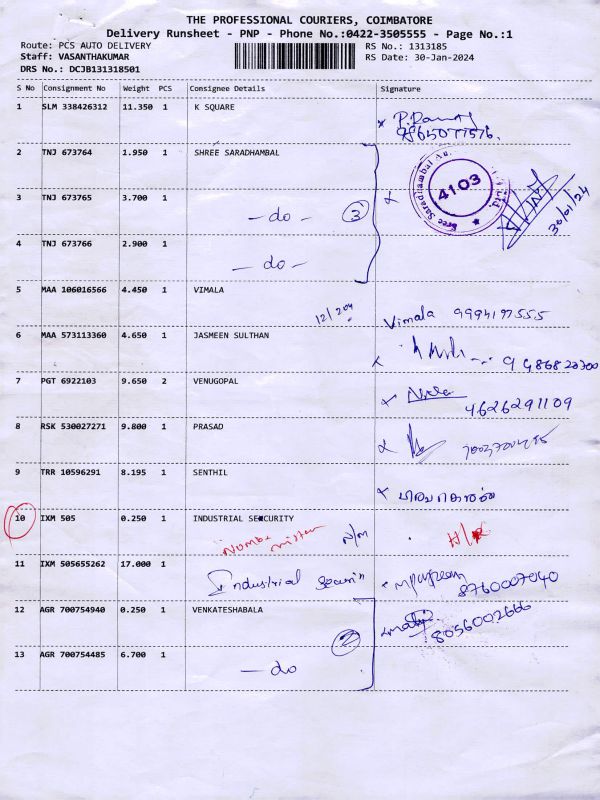 THE PROFESSIONAL COURIERS, COIMBATORE
Delivery Runsheet - PNP - Phone No.:0422-3505555 - Page No.:1
Route: PCS AUTO DELIVERY
RS No.: 1313185
Staff: VASANTHAKUMAR
RS Date: 30-Jan-2024
DRS No.: DCJB131318501
S No Consignment No Weight PCS Consignee Details Signature
1 SLM 338426312 11.350 1 K SQUARE
2 TNJ 673764 1.950 1 SHREE SARADHAMBAL
4103
30/01/24
3 TNJ 673765 3.700 1 - do - 3
4 TNJ 673766 2.900 1 - do -
5 MAA 106016566 4.450 1 VIMALA
12/204
Vimala 9994197555
6 MAA 573113360 4.650 1 JASMEEN SULTHAN
7 PGT 6922103 9.650 2 VENUGOPAL
4626291109
8 RSK 530027271 9.800 1 PRASAD
9 TRR 10596291 8.195 1 SENTHIL
10 IXM 505 0.250 1 INDUSTRIAL SECURITY
N/M
11 IXM 505655262 17.000 1 Industrial
8760007040
12 AGR 700754940 0.250 1 VENKATESHABALA
2
8056002666
13 AGR 700754485 6.700 1 - do